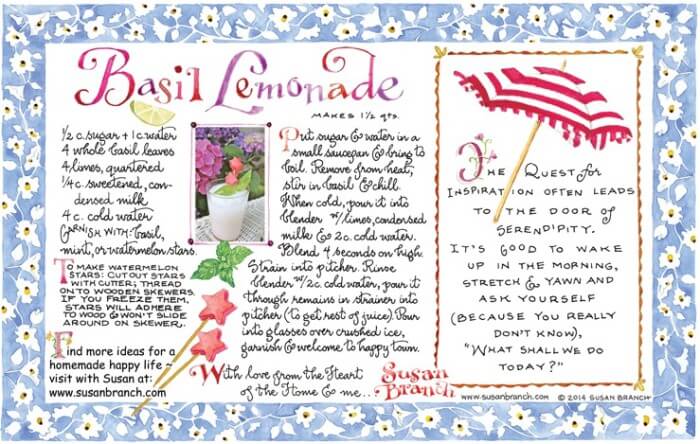 Basil Lemonade
MAKES 1½ qts.
½ c. sugar + 1 c. water
4 whole basil leaves
4 limes, quartered
¼ c. sweetened, con-
densed milk
4 c. cold water
GARNISH WITH: basil,
mint, or watermelon stars.
TO MAKE WATERMELON
STARS: CUT OUT STARS
WITH CUTTER; THREAD
ON TO WOODEN SKEWERS.
IF YOU FREEZE THEM,
STARS WILL ADHERE
TO WOOD & WON'T SLIDE
AROUND ON SKEWER.
Find more ideas for a
homemade happy life ~
visit with Susan at:
www.susanbranch.com
Put sugar & water in a
small saucepan & bring to
boil. Remove from heat,
stir in basil & chill.
When cold, pour it into
blender w/ limes, condensed
milk & 2 c. cold water.
Blend 4 seconds on high.
Strain into pitcher. Rinse
blender w/ 2 c. cold water, pour it
through remains in strainer into
pitcher (to get rest of juice). Pour
into glasses over crushed ice,
garnish & welcome to happy town.
With love from the Heart
of the Home & me...
Susan
Branch
www.susanbranch.com
THE QUEST for
INSPIRATION OFTEN LEADS
TO THE DOOR of
SERENDIPITY.
IT'S GOOD TO WAKE
UP IN THE MORNING,
STRETCH & YAWN AND
ASK YOURSELF
(BECAUSE YOU REALLY
DON'T KNOW),
"WHAT SHALL WE DO
TODAY?"
© 2014 SUSAN BRANCH